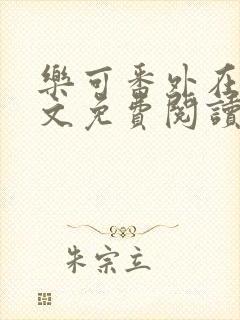 樂可番外在
文免費閱讀
朱宗立